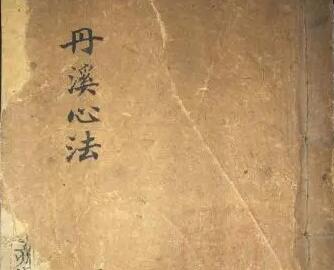 丹溪心法